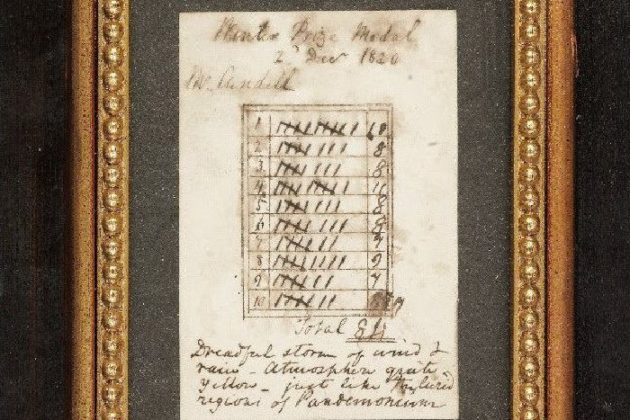 Winter Prize Medal
2d Decr 1820
Mr Cundell
1 10
2 8
3 8
4 11
5 8
6 8
7 7
8 9
9 7
10
Total 84
Dreadful storm of wind &
rain - Atmosphere quite
yellow - just like the lurid
regions of Pandemonium